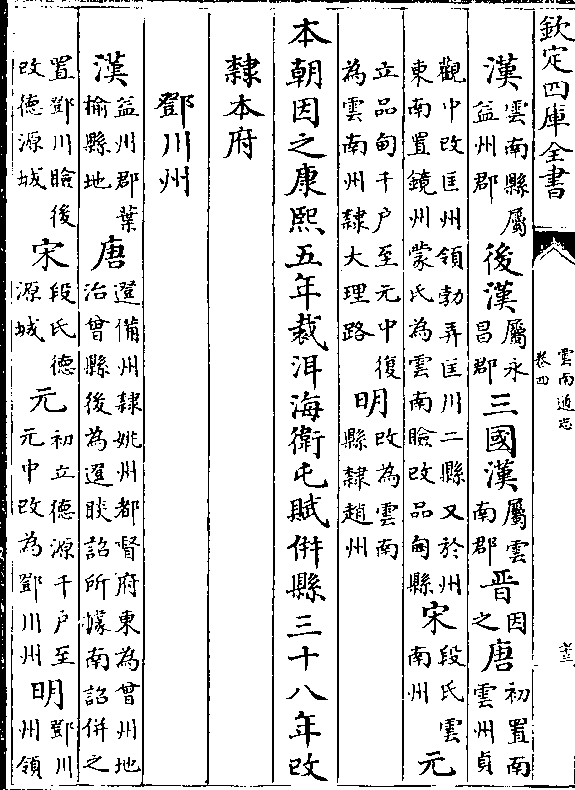 欽定四庫全書
雲南通志
卷四
漢雲南縣屬益州郡後漢屬永昌郡三國漢屬雲南郡晋因之唐初置南雲州貞
觀中改匡州領勃弄匡川二縣又於州東南置鏡州蒙氏為雲南瞼改品甸縣宋段氏雲南州元
立品甸千户至元中復為雲南州隸大理路明改為雲南縣隸趙州
本朝因之康熙五年裁洱海衛屯賦併縣三十八年改
隸本府
鄧川州
漢益州郡葉榆縣地唐邆備州隸姚州都督府東為曾州地治曾縣後為邆睒詔所據南詔併之
置鄧川瞼後改德源城宋段氏德源城元初立德源千户至元中改為鄧川州明鄧川州領